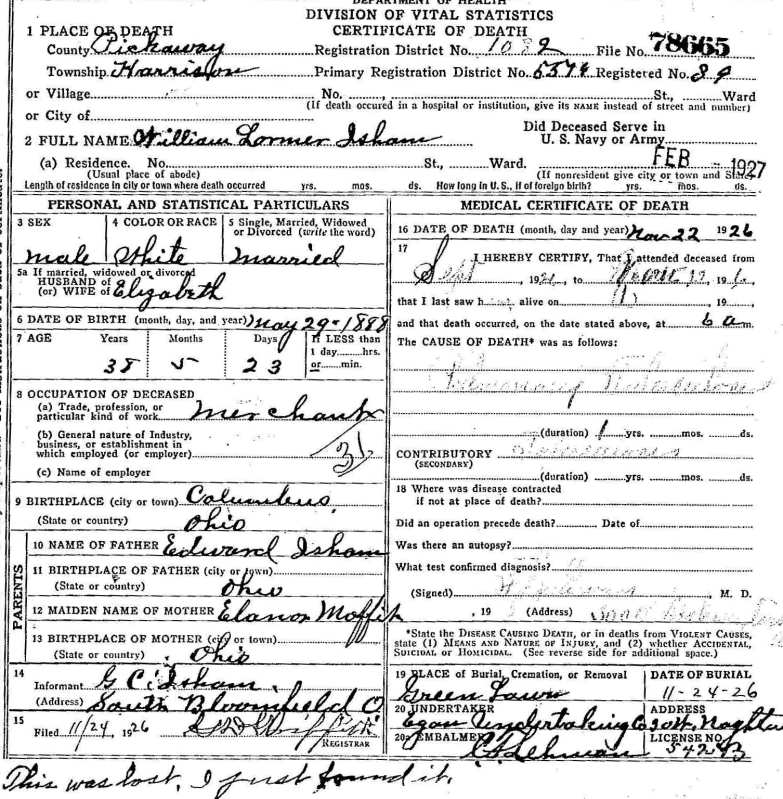 DEPARTMENT OF HEALTH
DIVISION OF VITAL STATISTICS
CERTIFICATE OF DEATH
1 PLACE OF DEATH
County Pickaway Registration District No. 1082 File No. 78665
Township Harrison Primary Registration District No. 5574 Registered No. 89
or Village No. , St., Ward
(If death occured in a hospital or institution, give its NAME instead of street and number)
or City of
2 FULL NAME William Lormer Isham Did Deceased Serve in U. S. Navy or Army
(a) Residence. No. St., Ward. FEB - 1927
(Usual place of abode) (If nonresident give city or town and State)
Length of residence in city or town where death occurred yrs. mos. ds. How long in U. S., if of foreign birth? yrs. mos. ds.
PERSONAL AND STATISTICAL PARTICULARS
3 SEX 4 COLOR OR RACE 5 Single, Married, Widowed or Divorced (write the word)
male White married
5a If married, widowed or divorced
HUSBAND of
(or) WIFE of Elizabeth
6 DATE OF BIRTH (month, day, and year) May 29-1888
7 AGE Years Months Days If LESS than
1 day, hrs.
38 5 23 or min.
8 OCCUPATION OF DECEASED
(a) Trade, profession, or
particular kind of work merchant
(b) General nature of Industry,
business, or establishment in
which employed (or employer)
(c) Name of employer
9 BIRTHPLACE (city or town) Columbus
(State or country) Ohio
PARENTS
10 NAME OF FATHER Edward Isham
11 BIRTHPLACE OF FATHER (city or town)
(State or country) Ohio
12 MAIDEN NAME OF MOTHER Elanor Moffit
13 BIRTHPLACE OF MOTHER (city or town)
(State or country) Ohio
14
Informant G C. Isham
(Address) South Bloomfield O
15
Filed 11/24, 1926
REGISTRAR
MEDICAL CERTIFICATE OF DEATH
16 DATE OF DEATH (month, day and year) Nov 22 1926
17
I HEREBY CERTIFY, That I attended deceased from
Sept , 192 , to , 19
that I last saw h alive on , 19 ,
and that death occurred, on the date stated above, at 6 a m.
The CAUSE OF DEATH* was as follows:
Pulmonary Tuberculosis
(duration) 1 yrs. mos. ds.
CONTRIBUTORY
(SECONDARY)
(duration) yrs. mos. ds.
18 Where was disease contracted
if not at place of death?
Did an operation precede death? Date of
Was there an autopsy?
What test confirmed diagnosis?
(Signed) , M. D.
, 19 (Address)
*State the DISEASE CAUSING DEATH, or in deaths from VIOLENT CAUSES,
state (1) MEANS AND NATURE OF INJURY, and (2) whether ACCIDENTAL,
SUICIDAL OR HOMICIDAL. (See reverse side for additional space.)
19 PLACE of Burial, Cremation, or Removal DATE OF BURIAL
Green Lawn 11-24-26
20 UNDERTAKER ADDRESS
Egan Undertaking Co 30 W. Naghten
20a EMBALMER LICENSE NO.
Lehman
This was lost. I just found it.